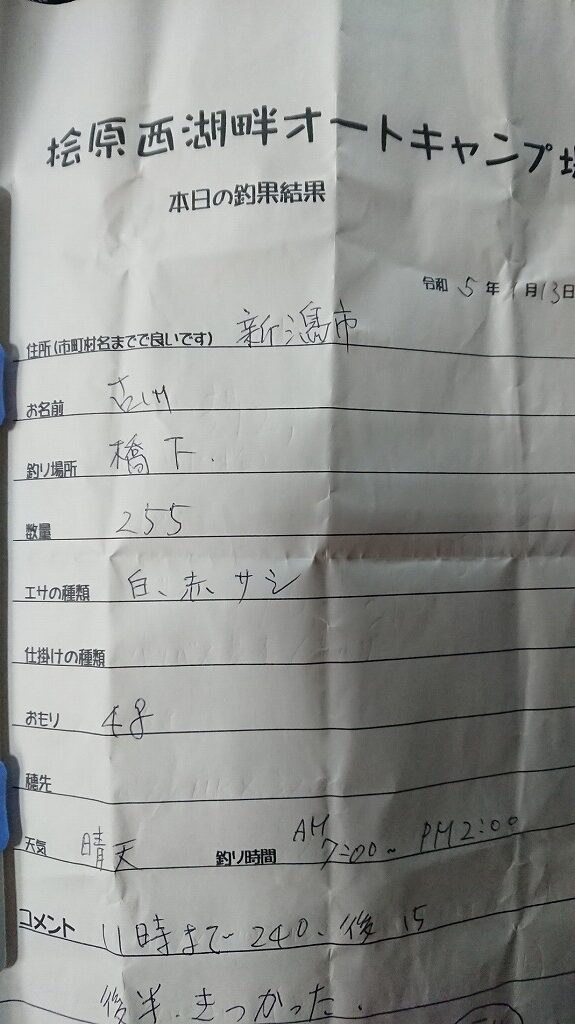 桧原西湖畔オートキャンプ場
本日の釣果結果
令和 5 年 1 月 13 日
住所(市町村名までで良いです) 新潟市
お名前 古川
釣り場所 橋下.
数量 255
エサの種類 白、赤、サシ
仕掛けの種類
おもり 4g
穂先
天気 晴天 釣り時間 AM 7:00~ PM 2:00
コメント 11時まで 240、後 15
後半、きつかった.